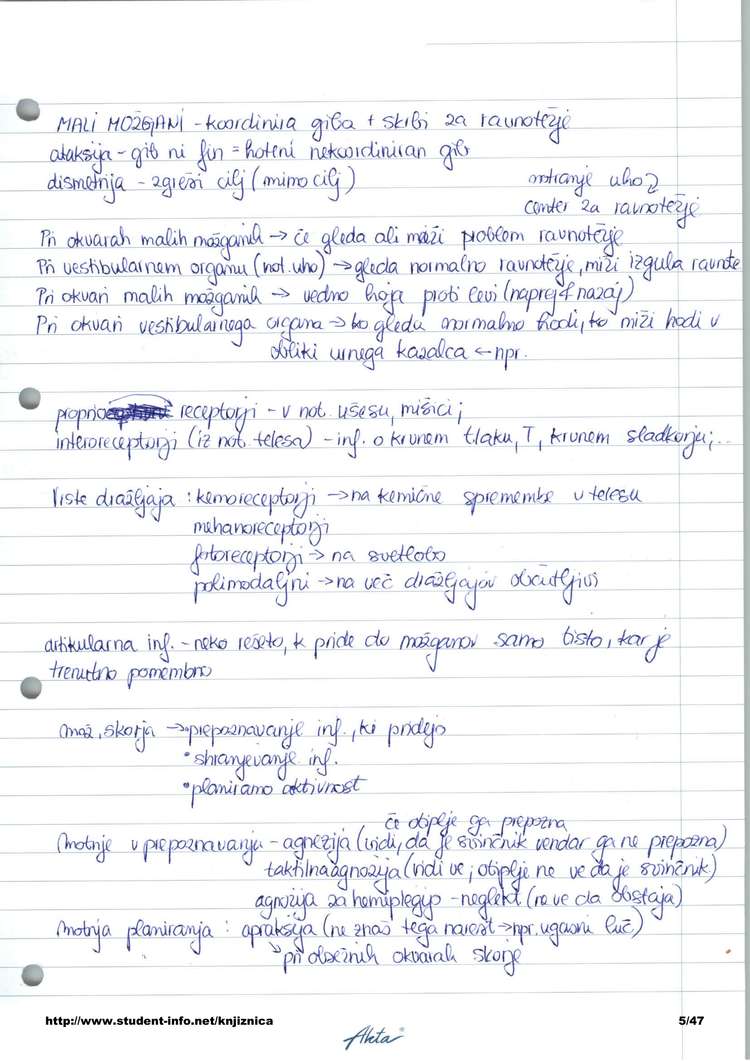 MALI MOŽGANI - koordinira giba + skrbi za ravnotežje
ataksija - gib ni fin = hoteni nekoordiniran gib
dismetrija - zgreši cilj (mimo cilj)
notranje uho
center za ravnotežje
Pri okvarah malih možganih → če gleda ali miži problem ravnotežje
Pri vestibularnem organu (not. uho) → gleda normalno ravnotežje, miži izgula ravnote
Pri okvari malih možganih → vedno hoja proti levi (naprej & nazaj)
Pri okvari vestibularnega organa → ko gleda normalno hodi, ko miži hodi v
obliki urnega kazalca ← npr.
proprio receptorji - v not. ušesu, mišici;
interoreceptorji (iz not. telesa) - inf. o krvnem tlaku, T, krvnem sladkorju;...
Vrste dražljaja : kemoreceptorji → na kemične spremembe v telesu
mehanoreceptorji
fotoreceptorji → na svetlobo
polimodaljni → na več dražljajov občutljivi
artikularna inf. - neko rešeto, k pride do možganov samo tisto, kar je
trenutno pomembno
mož. skorja → • prepoznavanje inf., ki pridejo
• shranjevanje inf.
• planiramo aktivnost
če otiplje ga prepozna
Motnje v prepoznavanju - agnozija (vidi, da je svinčnik vendar ga ne prepozna)
taktilna agnozija (vidi ve; otiplje ne ve da je svinčnik)
agnozija za hemiplegijo - neglekt (ne ve da obstaja)
Motnja planiranja : apraksija (ne znaš tega narest → npr. ugasni luč)
↳ pri obsežnih okvarah skorje
http://www.student-info.net/knjiznica
5/47